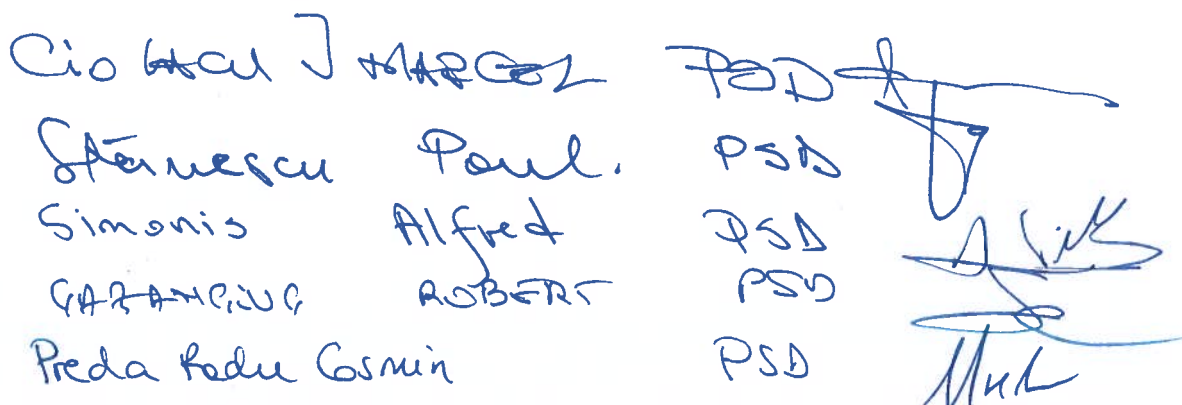 Ciolacu I MARCEL PSD
Stănescu Paul. PSD
Simonis Alfred PSD
CAZANCIUC ROBERT PSD
Preda Radu Cosmin PSD